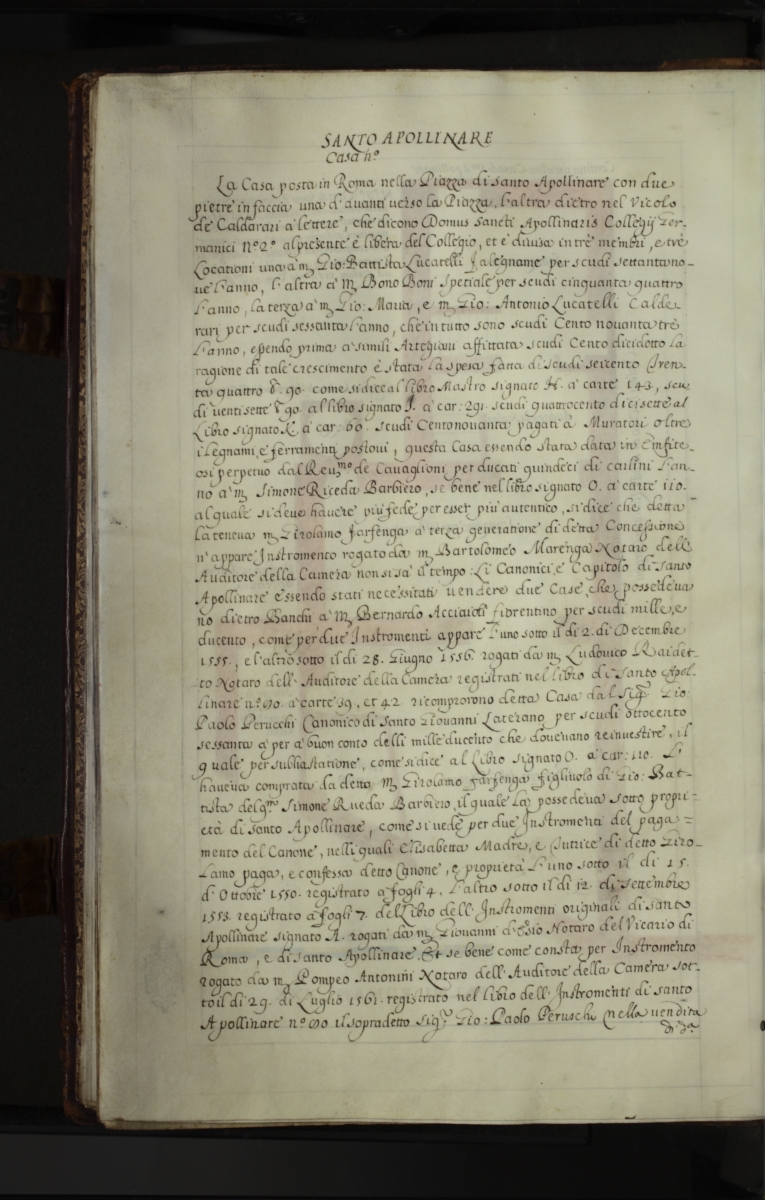 SANTO APOLLINARE
Casa nº
La Casa posta in Roma nella Piazza di Santo Apollinare con due
pietre in faccia una d'avanti verso la Piazza, l'altra dietro nel Vicolo
de Caldarari à lettere, che dicono Domus Sancti Apollinaris Collegij Ger-
manici Nº 2º al presente è libera del Collegio, et è divisa in trè membri, e trè
Locationi una à m Gio: Battista Lucatelli falegname per scudi settantano-
ve l'anno, l'altra à m Bono Boni Spetiale per scudi cinquanta quattro
l'anno, la terza à m Gio: Maria, e m Gio: Antonio Lucatelli Calde-
rari per scudi sessanta l'anno, che in tutto sono scudi Cento novanta trè
l'anno, essendo prima à simili Artegiani affittata scudi Cento dicidotto la
ragione di tale crescimento è stata la spesa fatta di scudi seicento tren-
ta quattro 90. come si dice al libro Mastro signato H. à carte 143, scu-
di ventisette 90. al libro signato I. à car: 291. scudi quattrocento dicisette al
Libro signato K. à car: 60. scudi Centonovanta pagati à Muratori oltre
i legnami, e ferramenti postovi, questa Casa essendo stata data in Emfite-
osi perpetuo dal Reu:mo de Cavaglioni per ducati quindeci di carlini l'an-
no à m Simone Riceda Barbiero, se bene nel libro signato O. à carte 110.
al quale si deve havere più fede per esser più autentico, si dice che detta
la teneva m Girolamo farfenga à terza generatione di detta Concessione
n'appare Instromento rogato da m Bartolomeo Marenga Notaro dell'
Auditore della Camera non si sà il tempo. Li Canonici, e Capitolo di Santo
Apollinare essendo stati necessitati vendere due Case, che possedeva
no dietro Banchi à m Bernardo Acciaioli fiorentino per scudi mille, e
ducento, come per due Instromenti appare l'uno sotto il di 2. di Decembre
1555., e l'altro sotto il di 28. Giugno 1556. rogati da m Ludovico Raidet-
to Notaro dell'Auditore della Camera registrati nel libro di Santo Apol-
linare nº à carte 39, et 42. ricomprorono detta Casa dal Sigr Gio:
Paolo Perucchi Canonico di Santo Giovanni Laterano per scudi ottocento
sessanta à per à buon conto delli mille ducento che dovevano reinvestire, il
quale per subhastatione, come si dice al Libro signato O. à car: 110. L'
haveva comprata da detto m Girolamo farfenga figliuolo di Gio: Bat-
tista del qm Simone Rueda Barbiero, il quale la possedeva sotto proprie-
età di Santo Apollinare, come si vede per due Instromenti del paga=
mento del Canone, nelli quali Elisabetta Madre, e Tutrice di detto Giro-
lamo paga, e confessa detto Canone, e proprietà l'uno sotto il di 15.
d'Ottobre 1550. registrato à fogli 4. l'altro sotto il di 12. di Settembre
1553. registrato à fogli 7. del Libro dell'Instromenti originali di santo
Apollinare signato A. rogati da m Giovanni Notaro del Vicario di
Roma, e di santo Apollinare. Et se bene come consta per Instromento
rogato da m Pompeo Antonini Notaro dell'Auditore della Camera sot-
to il di 29. di Luglio 1561. registrato nel libro dell'Instromenti di santo
Apollinare nº il sopradetto Sigr Gio: Paolo Peruschi nella vendita